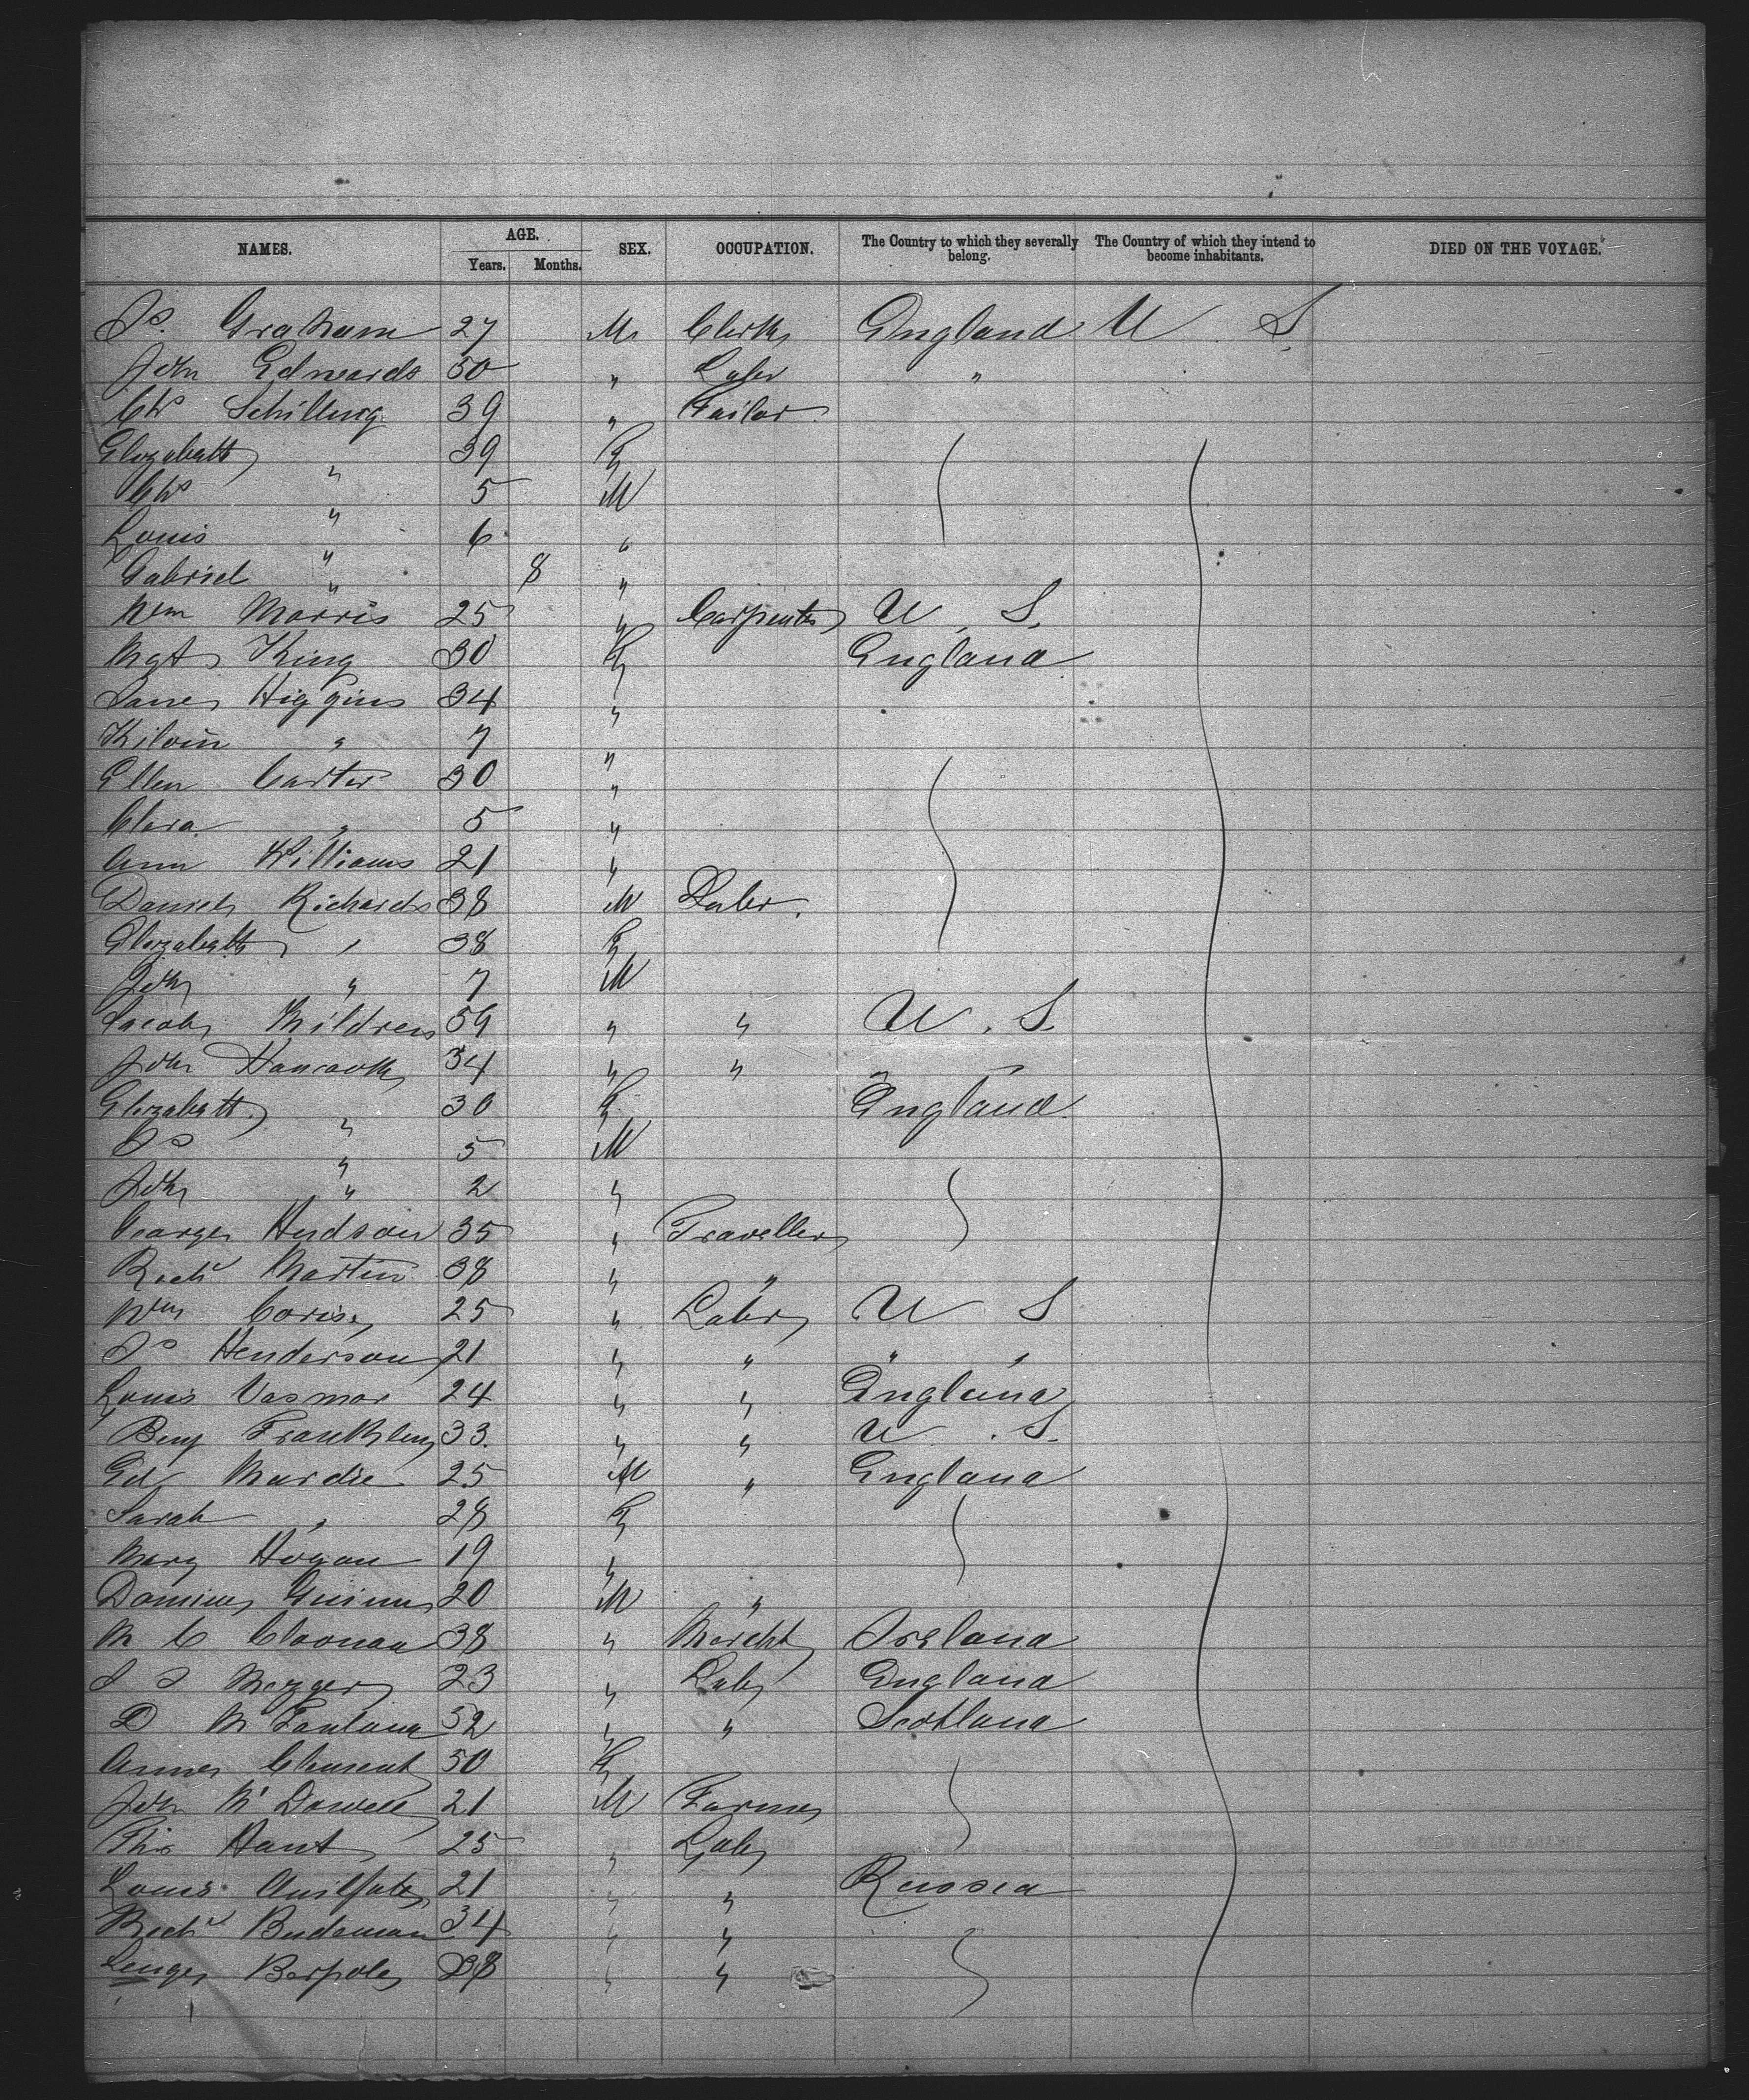 NAMES. AGE. Years. Months. SEX. OCCUPATION. The Country to which they severally belong. The Country of which they intend to become inhabitants. DIED ON THE VOYAGE.
Js. Graham 27 M Clerk England U S
John Edwards 50 " Labr "
Chs Schilling 39 " Tailor
Elizabeth " 39 F
Chs " 5 M
Louis " 6 "
Gabriel " 8 "
Wm Morris 25 " Carpenter U. S.
Mgt King 30 F England
Jane Higgins 34 "
" 7 "
Ellen Carter 30 "
Clara " 5 "
Ann Williams 21 "
Daniel Richards 38 M Labr.
Elizabeth " 38 F
John " 7 M
Jacob Mildren 59 " " U. S.
John Hancock 34 " " " "
Elizabeth " 30 F England
Js " 5 M
John " 2 "
George Hudson 35 " Traveller
Richd Martin 38 " "
Wm 25 " Labr U S
Js Henderson 21 " " " "
Louis Vasmar 24 " " England
Benj Franklin 33 " " U. S.
Ed Murdie 25 M " England
Sarah " 28 F
Mary Hogan 19 "
20 M "
M C Cloonan 38 " Mercht Ireland
Mezger 23 " Labr England
D 52 " " Scotland
Annie Clement 50 F
John McDowell 21 M Farmer
Ths Hant 25 " Labr
Louis 21 " " Russia
Richd 34 " "
38 " "